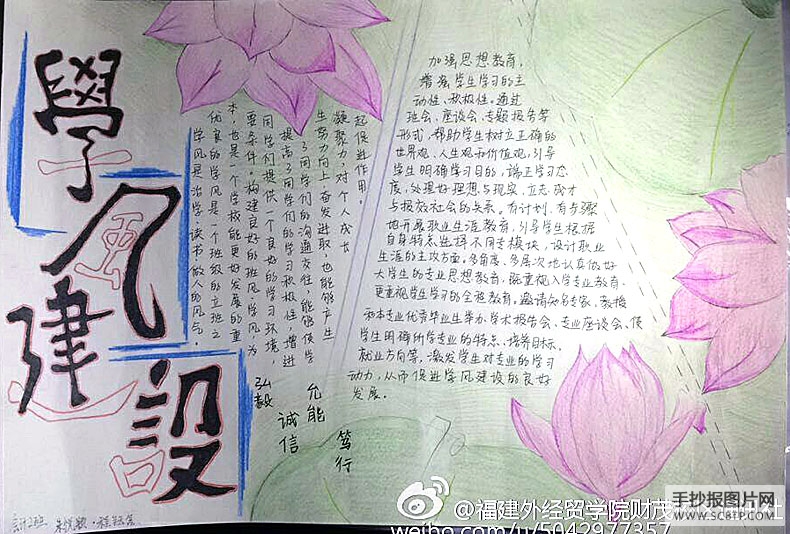 學風建設
学风是治学、读书、做人的风气
优良的学风是一个班级的立班之
本,也是一个学校能更好发展的重
要条件。构建良好的班风、学风,为
同学们提供一个良好的学习环境,
提高了同学们的学习积极性,增进
了同学们的沟通交往,能够使学
生努力向上、奋发进取,也能够产生
凝聚力,对个人成长
起促进作用。
弘毅
诚信
允能
笃行
加强思想教育,
增强学生学习的主
动性、积极性,通过
班会、座谈会、专题报告等
形式,帮助学生树立正确的
世界观、人生观和价值观,引导
学生明确学习目的,端正学习态
度,处理好理想与现实、立志成才
与报效社会的关系。有计划、有步骤
地开展职业生涯教育,引导学生根据
自身特点选择不同专模块,设计职业
生涯的主攻方面。多角度、多层次地认真做好
大学生的专业思想教育,既重视入学专业教育,
更重视学生学习的全程教育。邀请知名专家、教授
和本专业优秀毕业生举办学术报告会、专业座谈会、使
学生明确所学专业的特点、培养目标、
就业方向等,激发学生对专业的学习
动力,从而促进学风建设的良好
发展。
会计2班
@福建外经贸学院财茂
weibo.com/u/5042977357
手抄报图片网
www.SCBTP.COM